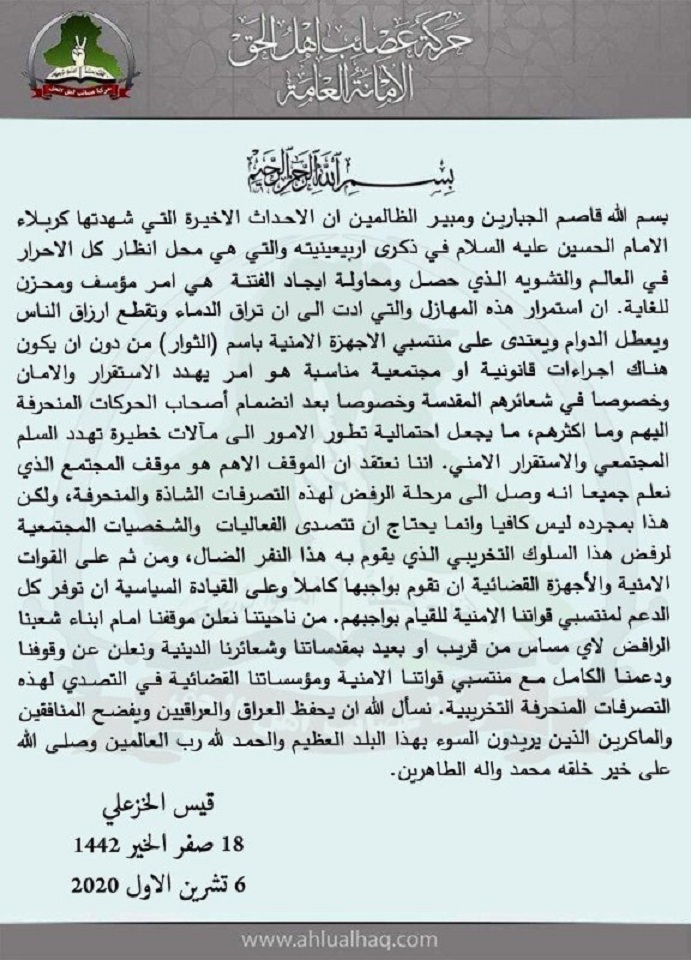 حركة عصائب اهل الحق
الامانة العامة
بسم الله الرحمن الرحيم
بسم الله قاصم الجبارين ومبير الظالمين ان الاحداث الاخيرة التي شهدتها كربلاء
الامام الحسين عليه السلام في ذكرى اربيعينيته والتي هي محل انظار كل الاحرار
في العالم والتشويه الذي حصل ومحاولة ايجاد الفتنة هي امر مؤسف ومحزن
للغاية. ان استمرار هذه المهازل والتي ادت الى ان تراق الدماء وتقطع ارزاق الناس
ويعطل الدوام ويعتدى على منتسبي الاجهزة الامنية باسم (الثوار) من دون ان يكون
هناك اجراءات قانونية او مجتمعية مناسبة هو امر يهدد الاستقرار والامان
وخصوصا في شعائرهم المقدسة وخصوصا بعد انضمام أصحاب الحركات المنحرفة
اليهم وما اكثرهم، ما يجعل احتمالية تطور الامور الى مآلات خطيرة تهدد السلم
المجتمعي والاستقرار الامني. اننا نعتقد ان الموقف الاهم هو موقف المجتمع الذي
نعلم جميعا انه وصل الى مرحلة الرفض لهذه التصرفات الشاذة والمنحرفة، ولكن
هذا بمجرده ليس كافيا وانما يحتاج ان تتصدى الفعاليات والشخصيات المجتمعية
لرفض هذا السلوك التخريبي الذي يقوم به هذا النفر الضال، ومن ثم على القوات
الامنية والأجهزة القضائية ان تقوم بواجبها كاملا وعلى القيادة السياسية ان توفر كل
الدعم لمنتسبي قواتنا الامنية للقيام بواجبهم. من ناحيتنا نعلن موقفنا امام ابناء شعبنا
الرافض لاي مساس من قريب او بعيد بمقدساتنا وشعائرنا الدينية ونعلن عن وقوفنا
ودعمنا الكامل مع منتسبي قواتنا الامنية ومؤسساتنا القضائية في التصدي لهذه
التصرفات المنحرفة التخريبية. نسأل الله ان يحفظ العراق والعراقيين ويفضح المنافقين
والماكرين الذين يريدون السوء بهذا البلد العظيم والحمد لله رب العالمين وصلى الله
على خير خلقه محمد واله الطاهرين.
قيس الخزعلي
18 صفر الخير 1442
6 تشرين الاول 2020
www.ahlualhaq.com